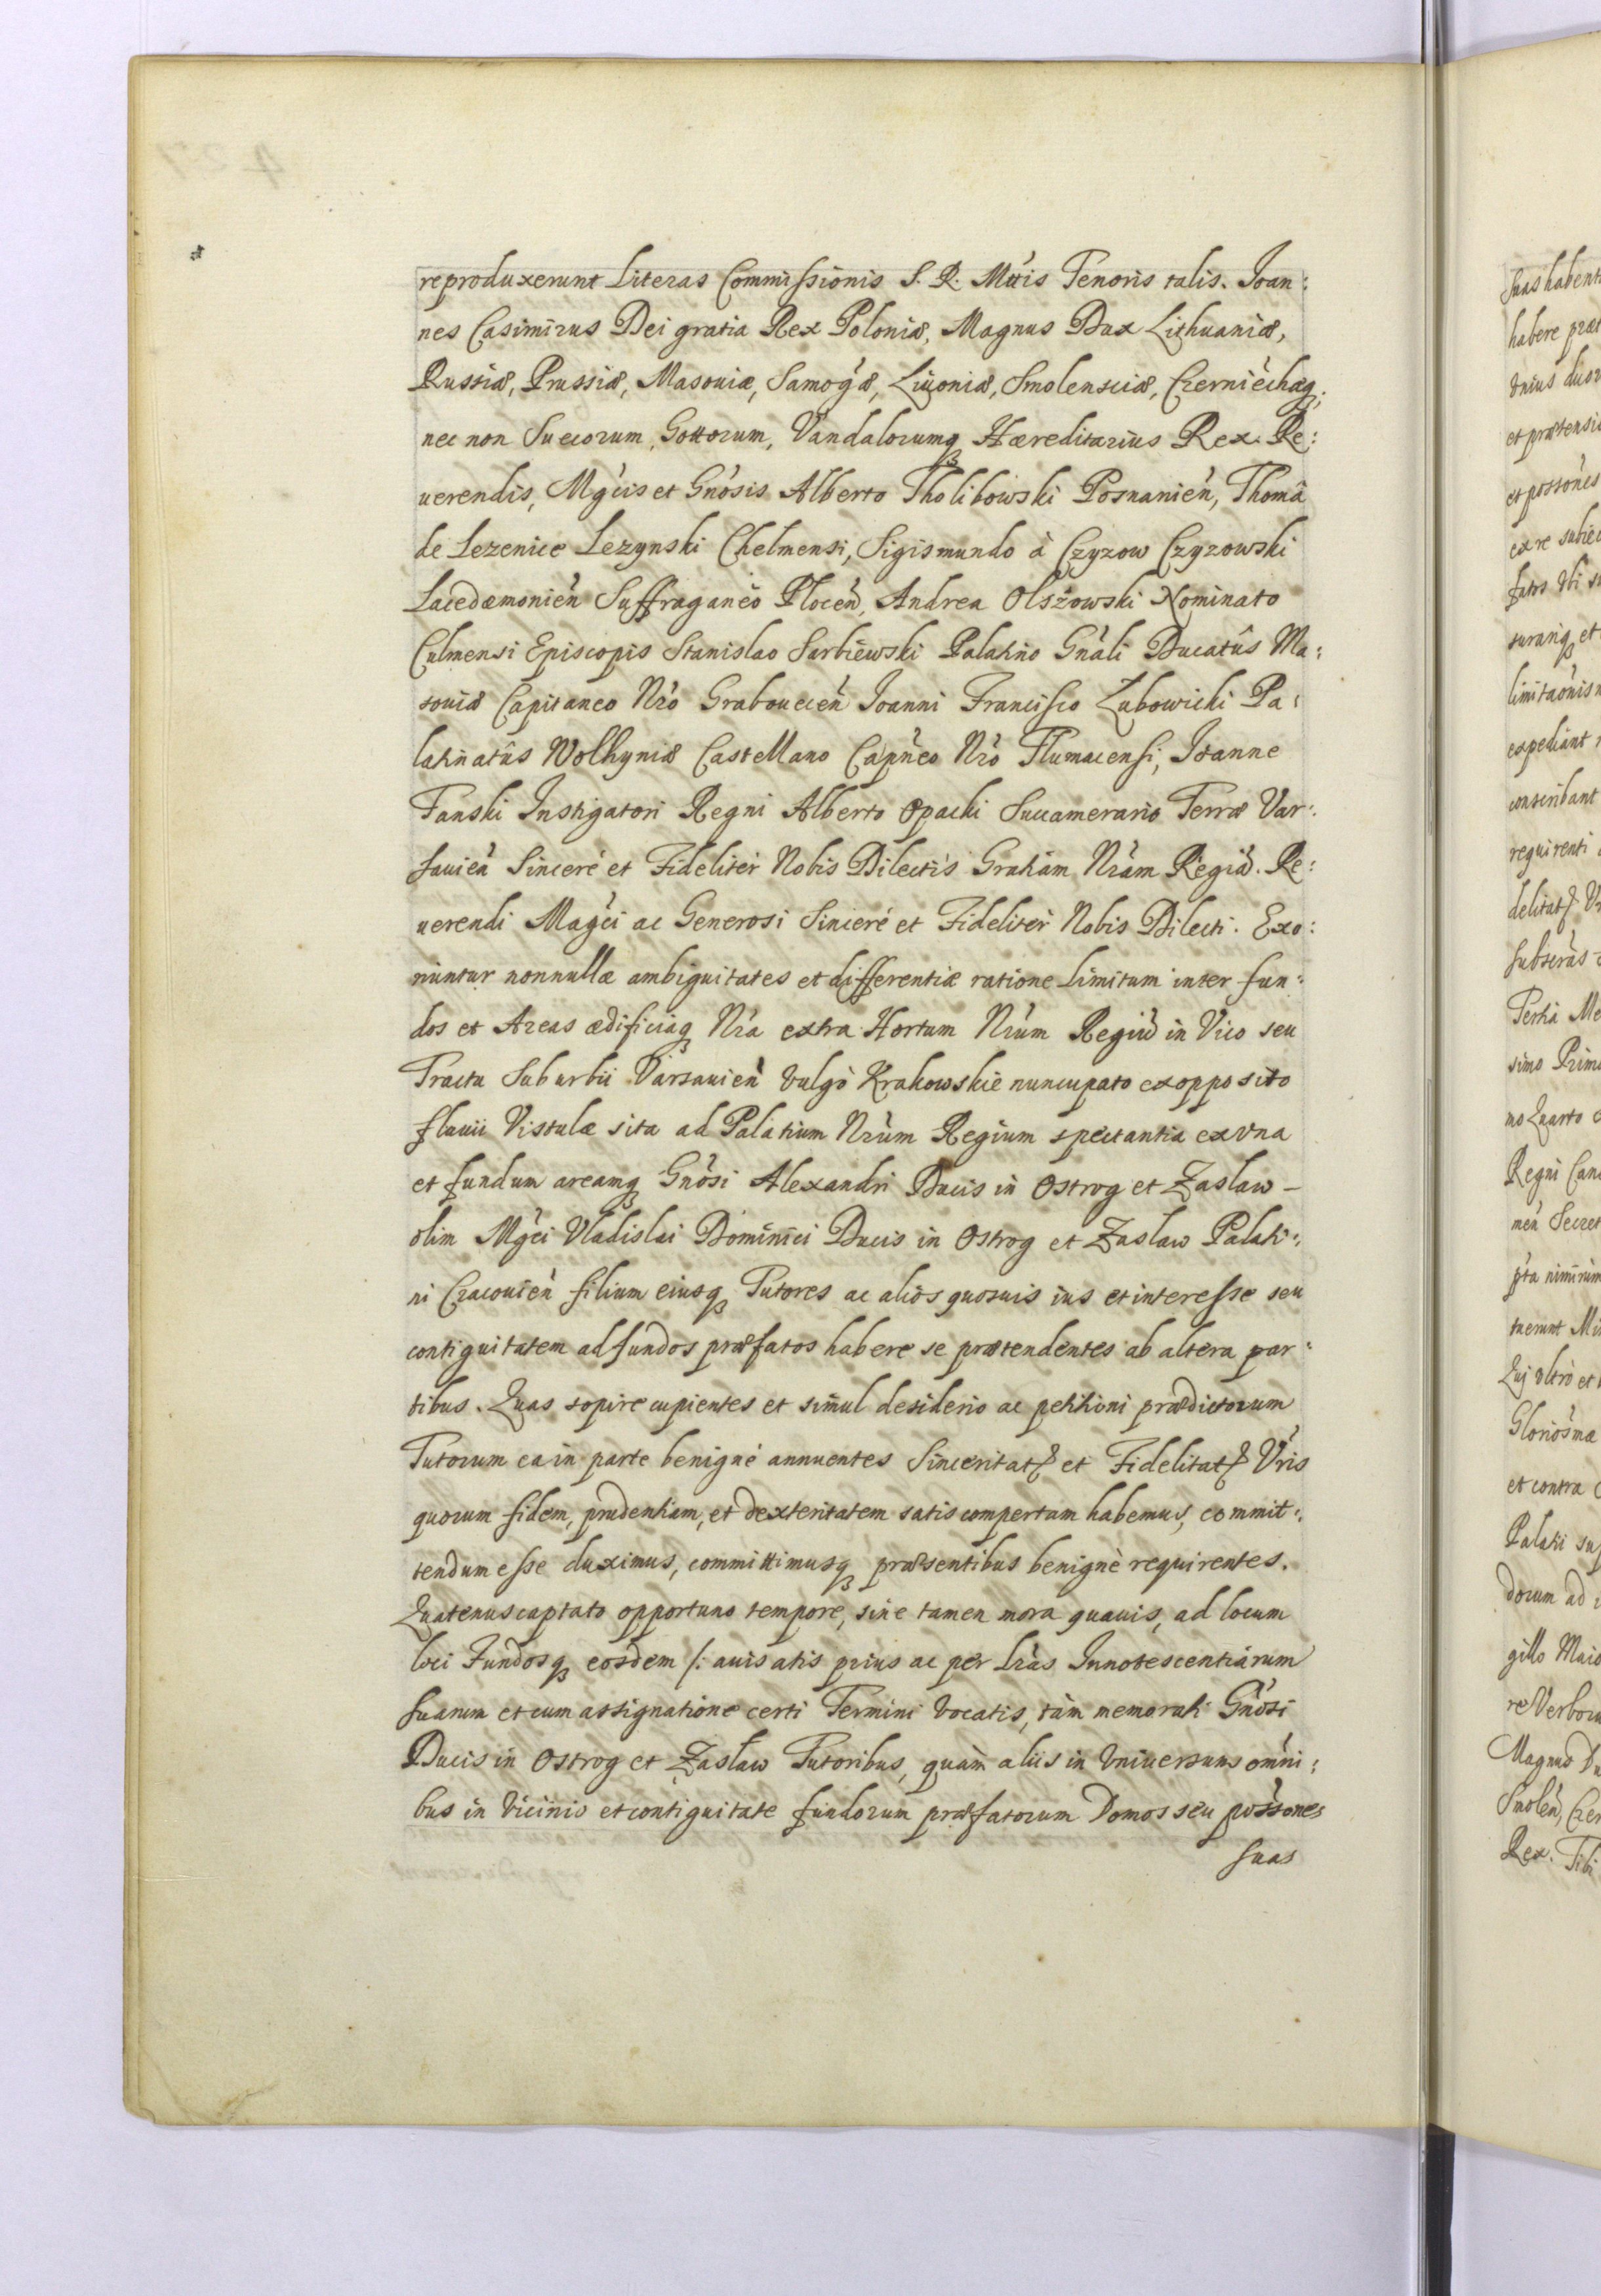 reproduxerunt Literas Commissionis S. R. Mttis Tenoris talis. Ioan:
nes Casimirus Dei gratia Rex Poloniæ, Magnus Dux Lithuaniæ,
Russiæ, Prussiæ, Masouiæ, Samogæ, Liuoniæ, Smolensciæ, Czerniechæq;
nec non Suecorum, Gottorum, Vandalorumq Hæreditarius Rex. Re:
uerendis, Mgcis et Gnosis Alberto Tholibowski Posnanien, Thomâ
de Lezenice Lezynski Chelmensi, Sigismundo à Czyzow Czyzowski
Lacedæmonien Suffraganeo Plocen, Andrea Olszowski Nominato
Culmensi Episcopis Stanislao Sarbiewski Palatino Gnali Ducatûs Ma:
souiæ Capitaneo Nro Grabouecen Ioanni Francisco Lubowicki Pa:
latinatûs Wolhyniæ Castellano Capneo Nro Tlumacensi, Ioanne
Tanski Instigatori Regni Alberto Opacki Succamerario Terræ Var:
sauien Sinceré et Fideliter Nobis Dilectis Gratiam Nram Regia. Re:
uerendi Magci ac Generosi Sinceré et Fideliter Nobis Dilecti. Exo:
riuntur nonnullæ ambiguitates et differentiæ ratione Limitum inter fun:
dos et Areas ædificiaq Nra extra Hortum Nrum Regiu in Vico seu
Tractu Suburbii Varsauien vulgò Krakowskie nuncupato exopposito
fluuii Vistulæ sita ad Palatium Nrum Regium spectantia ex vna
et fundum areamq Gnosi Alexandri Ducis in Ostrog et Zaslaw –
olim Mgci Vladislai Dominici Ducis in Ostrog et Zaslaw Palati:
ni Cracouien filium eiusq Tutores ac alios quosuis ius et interesse seu
contiguitatem ad fundos præfatos habere se prætendentes ab altera par:
tibus. Quas sopire cupientes et simul desiderio ac petitioni prædictorum
Tutorum ea in parte benignè annuentes Sinceritat et Fidelitat Vris
quorum fidem, prudentiam, et dexteritatem satis compertam habemus, commit:
tendum esse duximus, committimusq præsentibus benignè requirentes.
Quatenus captato opportuno tempore, sine tamen mora quauis, ad locum
loci Fundosq eosdem /: auisatis prius ac per Lras Innotescentiarum
suarum et cum assignatione certi Termini vocatis, tàm memorati Gnosi
Ducis in Ostrog et Zaslaw Tutoribus, quàm aliis in vniuersum omni:
bus in vicinio et contiguitate fundorum præfatorum Domos seu possones
suas
Suas habent
habere præt
vnius duor
et prætensi
et possones
ex re subiec
limitaonis
expediant
conscribant
requirenti
delitat Vr
subseras
Tertia Me
simo Primo
mo Quarto
Regni Can
men Secret
pta nimirum
tuerunt
Qui vltrò et
et contra
Palati
dorum ad
gillo Maio
re Verborum
Magnus Du
Smolen, Czer
Rex.